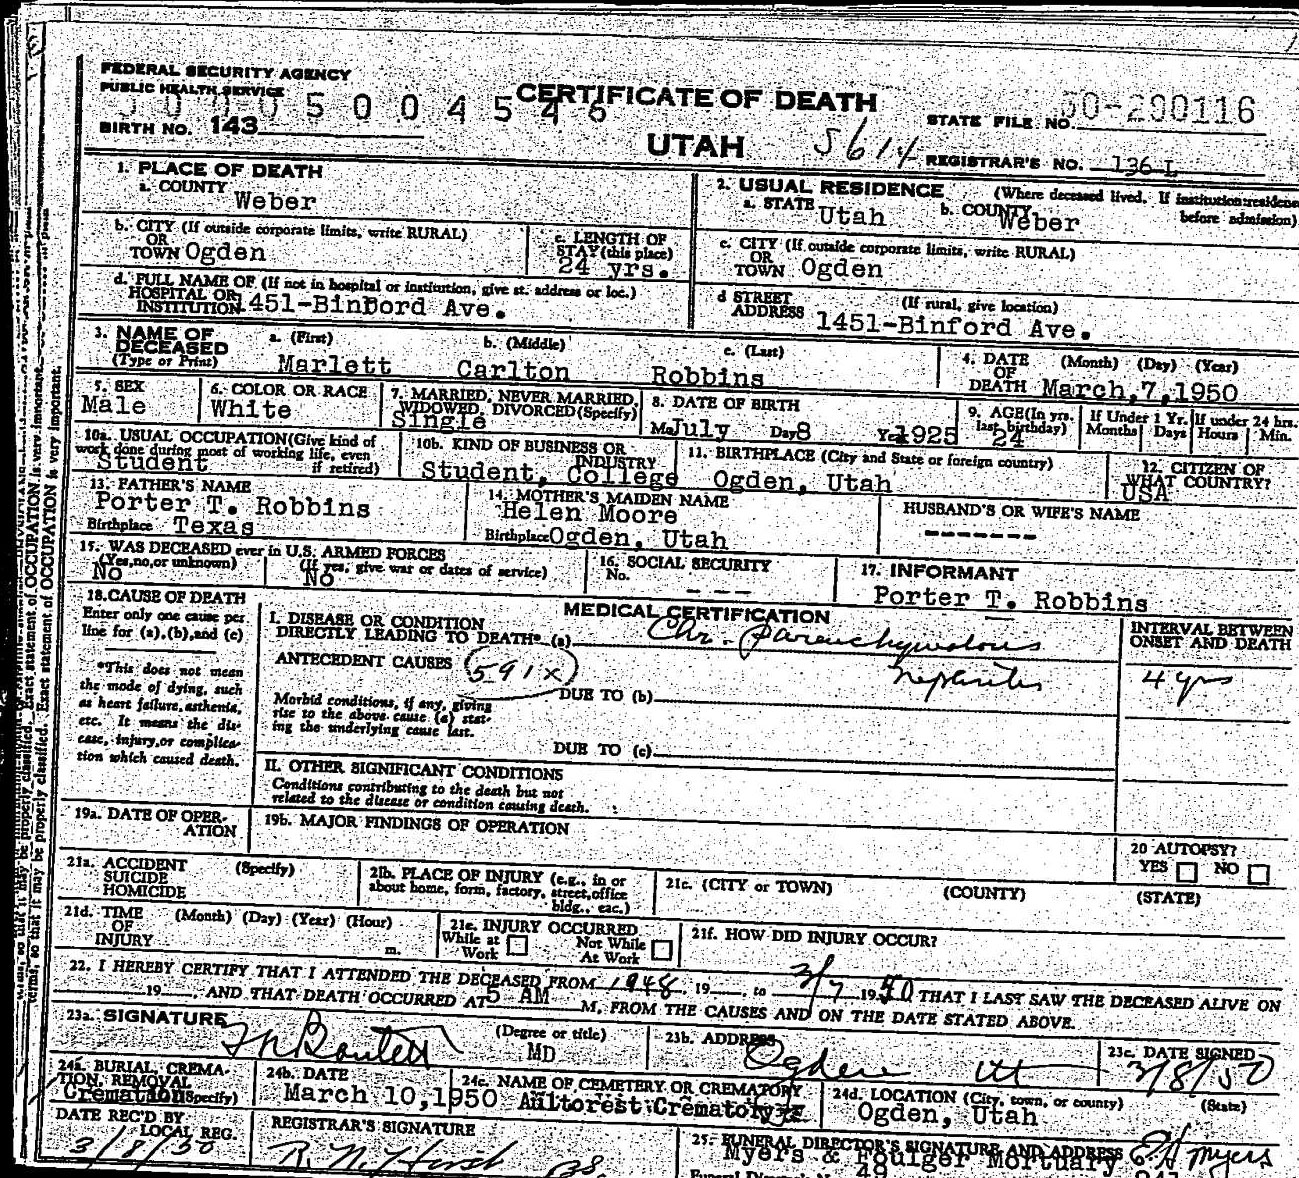 FEDERAL SECURITY AGENCY
PUBLIC HEALTH SERVICE
CERTIFICATE OF DEATH
5004546
STATE FILE NO. 50-290116
BIRTH NO. 143
UTAH
5614
REGISTRAR'S NO. 136-L
1. PLACE OF DEATH
a. COUNTY Weber
2. USUAL RESIDENCE (Where deceased lived. If institution: residence before admission)
a. STATE Utah b. COUNTY Weber
b. CITY (If outside corporate limits, write RURAL) OR TOWN Ogden
c. LENGTH OF STAY (this place) 24 yrs.
c. CITY (If outside corporate limits, write RURAL) OR TOWN Ogden
d. FULL NAME OF (If not in hospital or institution, give st. address or loc.) HOSPITAL OR INSTITUTION 1451-Binbord Ave.
d STREET ADDRESS (If rural, give location) 1451-Binford Ave.
3. NAME OF DECEASED (Type or Print) a. (First) b. (Middle) c. (Last)
Marlett Carlton Robbins
4. DATE OF DEATH (Month) (Day) (Year) March,7,1950
5. SEX Male
6. COLOR OR RACE White
7. MARRIED, NEVER MARRIED, WIDOWED, DIVORCED (Specify) Single
8. DATE OF BIRTH Mo July Day 8 Year 1925
9. AGE (In yrs. last birthday) 24
If Under 1 Yr. Months Days
If under 24 hrs. Hours Min.
10a. USUAL OCCUPATION (Give kind of work done during most of working life, even if retired) Student
10b. KIND OF BUSINESS OR INDUSTRY Student, College
11. BIRTHPLACE (City and State or foreign country) Ogden, Utah
12. CITIZEN OF WHAT COUNTRY? USA
13. FATHER'S NAME Porter T. Robbins
Birthplace Texas
14. MOTHER'S MAIDEN NAME Helen Moore
Birthplace Ogden, Utah
HUSBAND'S OR WIFE'S NAME
-------
15. WAS DECEASED ever in U.S. ARMED FORCES
(Yes, no, or unknown) No
(If yes, give war or dates of service) No
16. SOCIAL SECURITY No. ---
17. INFORMANT Porter T. Robbins
18. CAUSE OF DEATH
Enter only one cause per line for (a), (b), and (c)
*This does not mean the mode of dying, such as heart failure, asthenia, etc. It means the disease, injury, or complication which caused death.
MEDICAL CERTIFICATION
I. DISEASE OR CONDITION DIRECTLY LEADING TO DEATH* (a) Chr. Parenchymatous
nephritis
INTERVAL BETWEEN ONSET AND DEATH
4 yrs
ANTECEDENT CAUSES 591X
Morbid conditions, if any, giving rise to the above cause (a) stating the underlying cause last.
DUE TO (b)
DUE TO (c)
II. OTHER SIGNIFICANT CONDITIONS
Conditions contributing to the death but not related to the disease or condition causing death.
19a. DATE OF OPERATION
19b. MAJOR FINDINGS OF OPERATION
20 AUTOPSY?
YES NO
21a. ACCIDENT SUICIDE HOMICIDE (Specify)
21b. PLACE OF INJURY (e.g., in or about home, form, factory, street, office bldg., etc.)
21c. (CITY or TOWN) (COUNTY) (STATE)
21d. TIME OF INJURY (Month) (Day) (Year) (Hour) m.
21e. INJURY OCCURRED
While at Work Not While At Work
21f. HOW DID INJURY OCCUR?
22. I HEREBY CERTIFY THAT I ATTENDED THE DECEASED FROM 1948, 19__, to 3/7 1950 THAT I LAST SAW THE DECEASED ALIVE ON
19__, AND THAT DEATH OCCURRED AT 5 AM M, FROM THE CAUSES AND ON THE DATE STATED ABOVE.
23a. SIGNATURE (Degree or title) MD
23b. ADDRESS Ogden Ut
23c. DATE SIGNED 3/8/50
24a. BURIAL, CREMATION, REMOVAL (Specify) Cremation
24b. DATE March 10,1950
24c. NAME OF CEMETERY OR CREMATORY Aultorest Crematory
24d. LOCATION (City, town, or county) (State) Ogden, Utah
DATE REC'D BY LOCAL REG. 3/8/50
REGISTRAR'S SIGNATURE
25. FUNERAL DIRECTOR'S SIGNATURE AND ADDRESS
Myers & Foulger Mortuary E H Myers